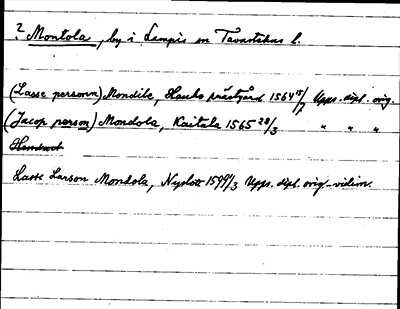 ? Montola, by i Lampis sn Tavastehus l.
(Lasse personn) Mondile, Hauho prästgård 1564 15/7 Upps. dipl. orig.
(Jacop person) Mondola, Kaitala 1565 28/3 " " "
Lasse Larson Mondola, Nyslott 1599 /3 Upps. dipl. orig.-vidim.